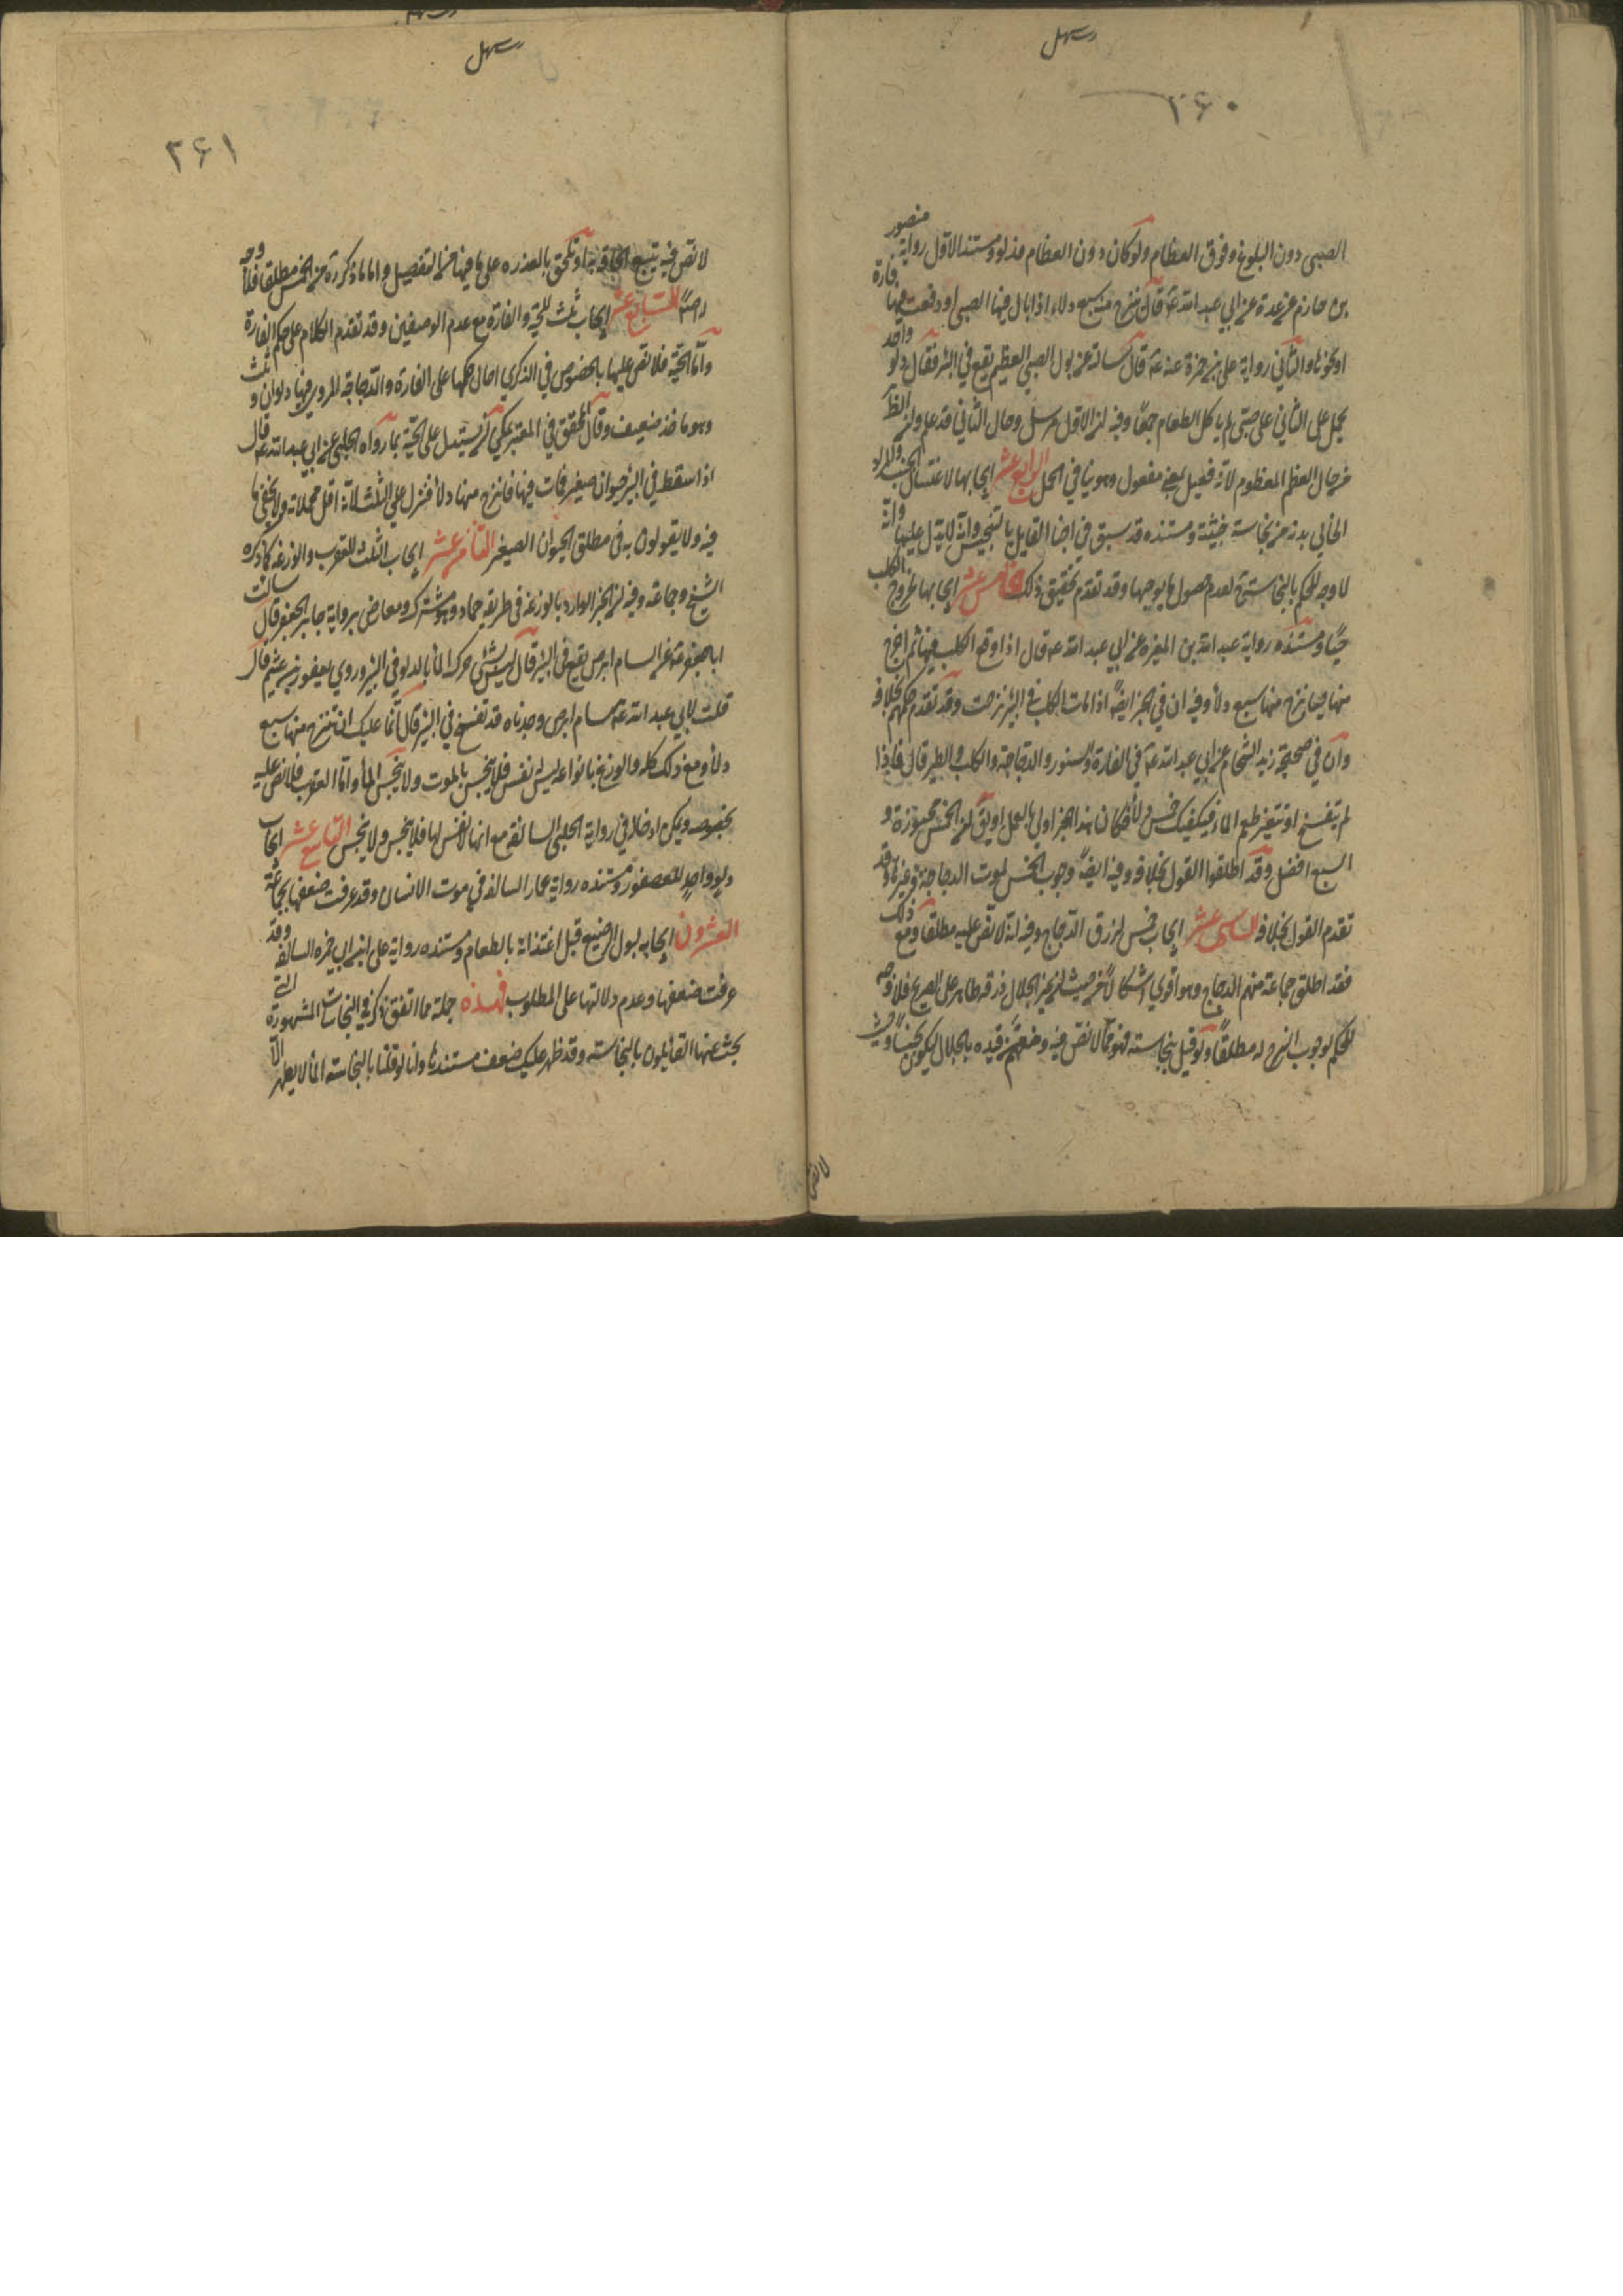 ۲۶۰
الصبي دون البلوغ وفوق العظام ولو كان دون العظام فدلو ومستند الاول رواية منصور
بن حازم عن عدة عن ابي عبد الله ع قال ينزح منه سبع دلاء اذا بال فيها الصبي او وقعت فيها فارة
او نحوها والثاني رواية علي بن حمزة عنه ع قال سالته عن بول الصبي العظيم يقع في البئر فقال دلو واحد
يحمل على الثاني على صبي لم ياكل الطعام جمعا وفيه ان الاول مرسل وحال الثاني قد علم وان الظ
من حال العظم المعظوم لانه فعيل بمعنى مفعول وهو ينافي الحمل الرابع عشر ايجابها لاغتسال الجنب والمراد
الخالي بدنه من نجاسة خبيثة ومستنده قد سبق في اخبار القايل بالتنجيس وانه لا يدل عليها وانه
لا وجه للحكم بالنجاسة لعدم حصول ما يوجبها وقد تقدم تحقيق ذلك الخامس عشر ايجابها لخروج الكلب
حيا ومستنده رواية عبد الله بن المغيرة عن ابي عبد الله ع قال اذا وقع الكلب فيها ثم اخرج
منها حيا نزح منها سبع دلاء وفيه ان في الخبر ايضا اذا مات الكلب في البئر نزحت وقد تقدم حكمهم بخلافه
وان في صحيحة زيد الشحام عن ابي عبد الله ع في الفارة والسنور والدجاجة والكلب والطير قال فاذا
لم يتفسخ او تتغير طعم الماء فيكفيك خمس دلاء فكان هذا الخبر اولى بالعمل او يقى ان الخمس مجوزة و
السبع افضل وقد اطلقوا القول بخلافه وفيه ايضا وجوب الخمس لموت الدجاجة وغيرها وقد
تقدم القول بخلافه السادس عشر ايجاب خمس لزرق الدجاج وفيه انه لا نص عليه مطلقا ومع ذلك
فقد اطلق جماعة منهم الدجاج وهو اقوى اشكالا من حيث ان غير الجلال ذرقه طاهر على الصريح فلا وجه
للحكم لوجوب النزح له مطلقا ولو قيل بنجاسته فهو مما لا نص فيه وبعضهم قيده بالجلال ليكون نجسا وحيث
لا نص
۲۶۱
لا نص فيه يتبع الحاقه به او يلحق بالعذره على ما فيها من التفصيل واما ما ذكروه من الخمس مطلقا فلا وجه
له اصلا السابع عشر ايجاب ثلث للحية والفارة مع عدم الوصفين وقد تقدم الكلام على حكم الفارة
واما الحية فلا نص عليها بالخصوص في الذكرى احال حكمها على الفارة والدجاجة المروي فيها دلوان وثلث
وهو ماخذ ضعيف وقال المحقق في المعتبر يمكن ان يستدل على الحية بما رواه الحلبي عن ابي عبد الله ع قال
اذا سقط في البئر حيوان صغير فمات فيها فانزح منها دلاء فنزل على الثلث لانه اقل محملاته ولا يخفى ما
فيه ولا يقولون به في مطلق الحيوان الصغير الثامن عشر ايجاب الثلث للعقرب والوزغة كما ذكره
الشيخ وجماعة وفيه ان الخبر الوارد بالوزغة في طريقه حماد وهو مشترك ومعارض برواية جابر الجعفي قال سالت
ابا جعفر ع عن السام ابرص يقع في البئر قال ليس بشئ حرك الماء بالدلو في البئر وروى يعفور بن عثيم قال
قلت لابي عبد الله ع سام ابرص وجدناه قد تفسخ في البئر قال انما عليك ان تنزح منها سبع
دلاء ومع ذلك كله والوزغ بانواعه ليس له نفس فلا ينجس بالموت ولا ينجس الماء واما العقرب فلا نص عليه
بخصوصه ويمكن ادخالها في رواية الحلبي السالفة مع انها لا نفس لها فلا ينجس ولا ينجس التاسع عشر ايجاب
دلو واحد للعصفور ومستنده رواية عمار السالفة في موت الانسان وقد عرفت ضعفها بجماعة
العشرون ايجابه لبول الرضيع قبل اغتذائه بالطعام ومستنده رواية علي ابن ابي حمزه السالفة وقد
عرفت ضعفها وعدم دلالتها على المطلوب فهذه جملة مما اتفق ذكره في النجاسات المشهورة التي
بحث عنها القايلون بالنجاسته وقد ظهر عليك ضعف مستندها وانا لو قلنا بالنجاسته الماء لا يطهر الا